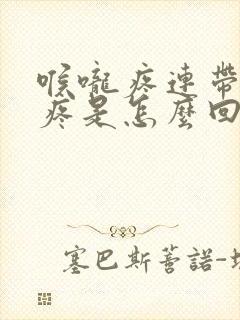 喉嚨疼連帶
疼是怎麼回
塞巴斯蒂諾-